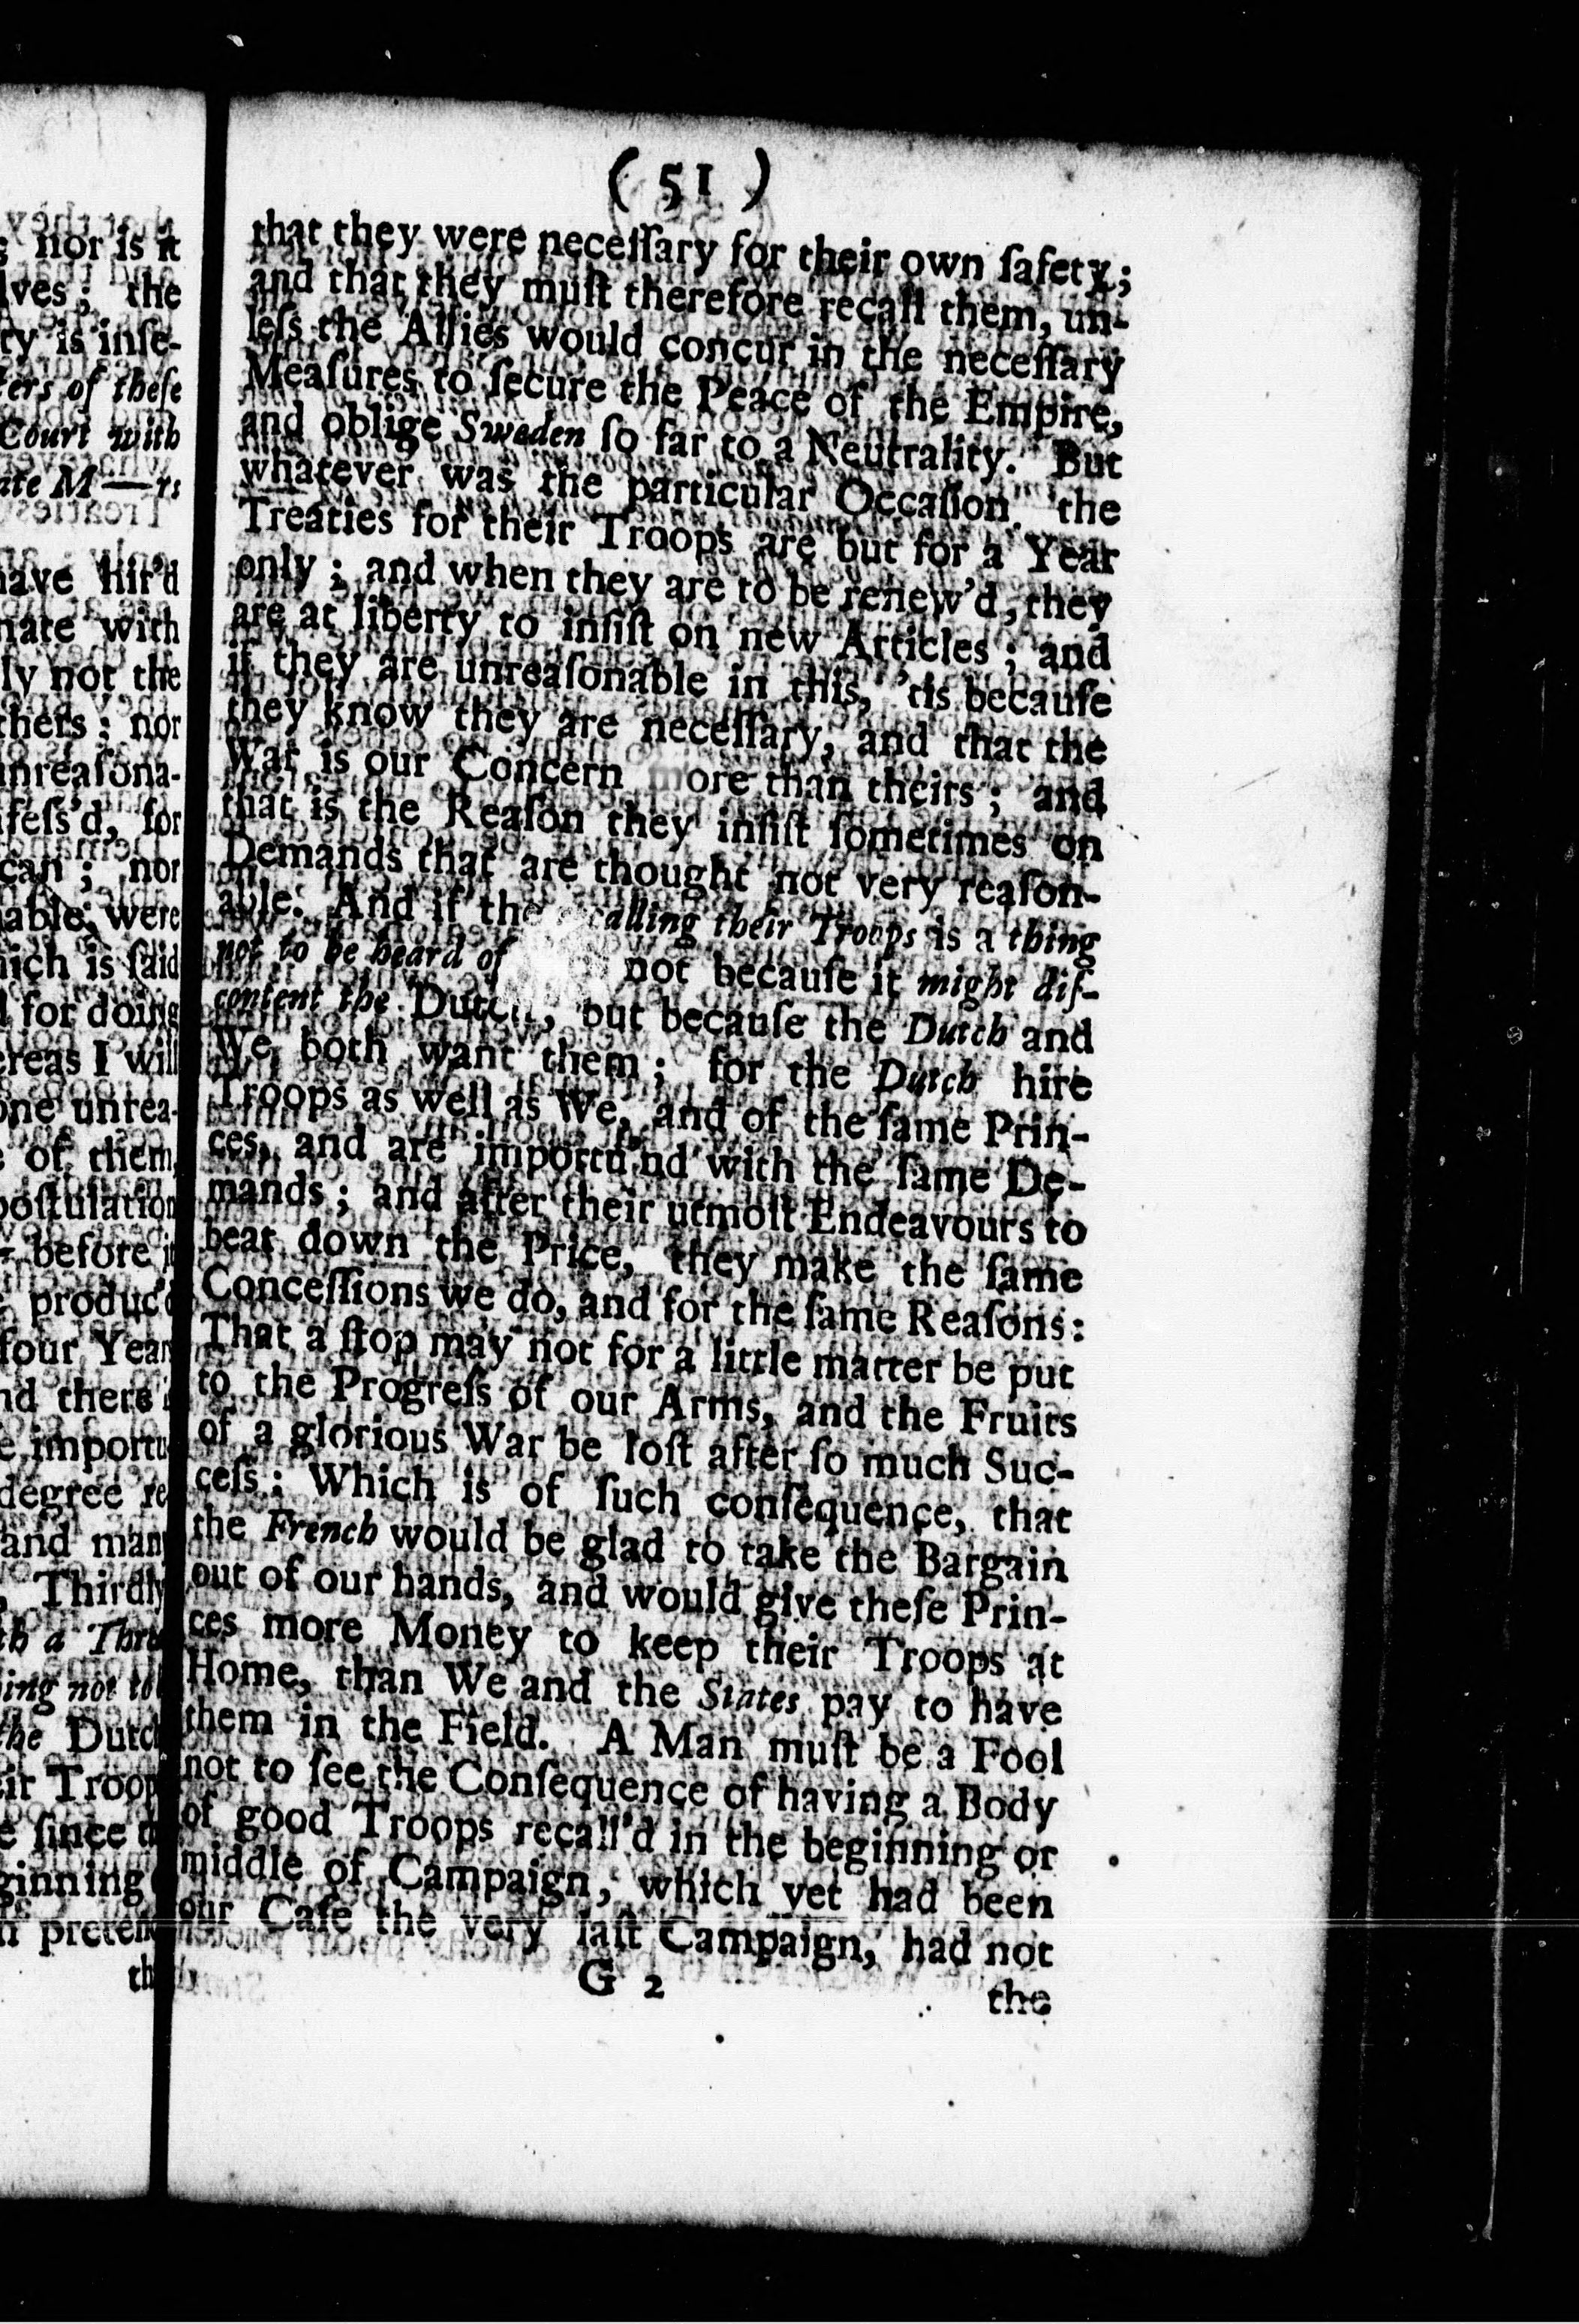 ; nor is it
lves; the
ty is inſe-
ters of theſe
Court with
ate M——rs
have hir'd
nate with
ly not the
thers; nor
unreaſona-
feſs'd, for
can; nor
nable, were
hich is ſaid
d for doing
ereas I will
one unrea-
of them,
poſtulation
before
produc'd
four Year
nd there
e importu
degree re
and man
Thirdly
th a Thre
ing not to
the Dutch
ir Troop
e ſince
ginning
preten
th
( 51 )
that they were neceſſary for their own ſafety;
and that they muſt therefore recall them, un-
leſs the Allies would concur in the neceſſary
Meaſures to ſecure the Peace of the Empire,
and oblige Sweden ſo far to a Neutrality. But
whatever was the particular Occaſion, the
Treaties for their Troops are but for a Year
only; and when they are to be renew'd, they
are at liberty to inſiſt on new Articles; and
if they are unreaſonable in this, 'tis becauſe
they know they are neceſſary, and that the
War is our Concern more than theirs; and
that is the Reaſon they inſiſt ſometimes on
Demands that are thought not very reaſon-
able. And if the calling their Troops is a thing
not to be heard of not becauſe it might diſ-
content the Dutch, but becauſe the Dutch and
We both want them; for the Dutch hire
Troops as well as We, and of the ſame Prin-
ces, and are importu'nd with the ſame De-
mands; and after their utmoſt Endeavours to
beat down the Price, they make the ſame
Conceſſions we do, and for the ſame Reaſons:
That a ſtop may not for a little matter be put
to the Progreſs of our Arms, and the Fruits
of a glorious War be loſt after ſo much Suc-
ceſs: Which is of ſuch conſequence, that
the French would be glad to take the Bargain
out of our hands, and would give theſe Prin-
ces more Money to keep their Troops at
Home, than We and the States pay to have
them in the Field. A Man muſt be a Fool
not to ſee the Conſequence of having a Body
of good Troops recall'd in the beginning or
middle of Campaign, which yet had been
our Caſe the very laſt Campaign, had not
G 2
the